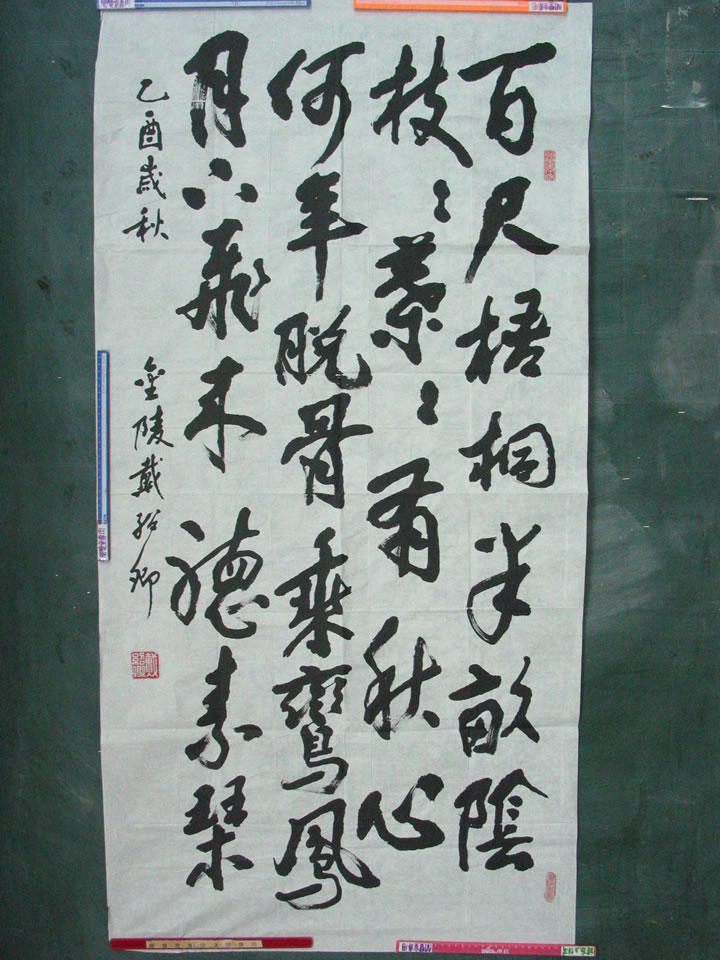 百尺梧桐半畝陰
枝〻葉〻有秋心
何年脫骨乘鸞鳳
月下飛來聽素琴
乙酉歲秋 金陵戴紹卿